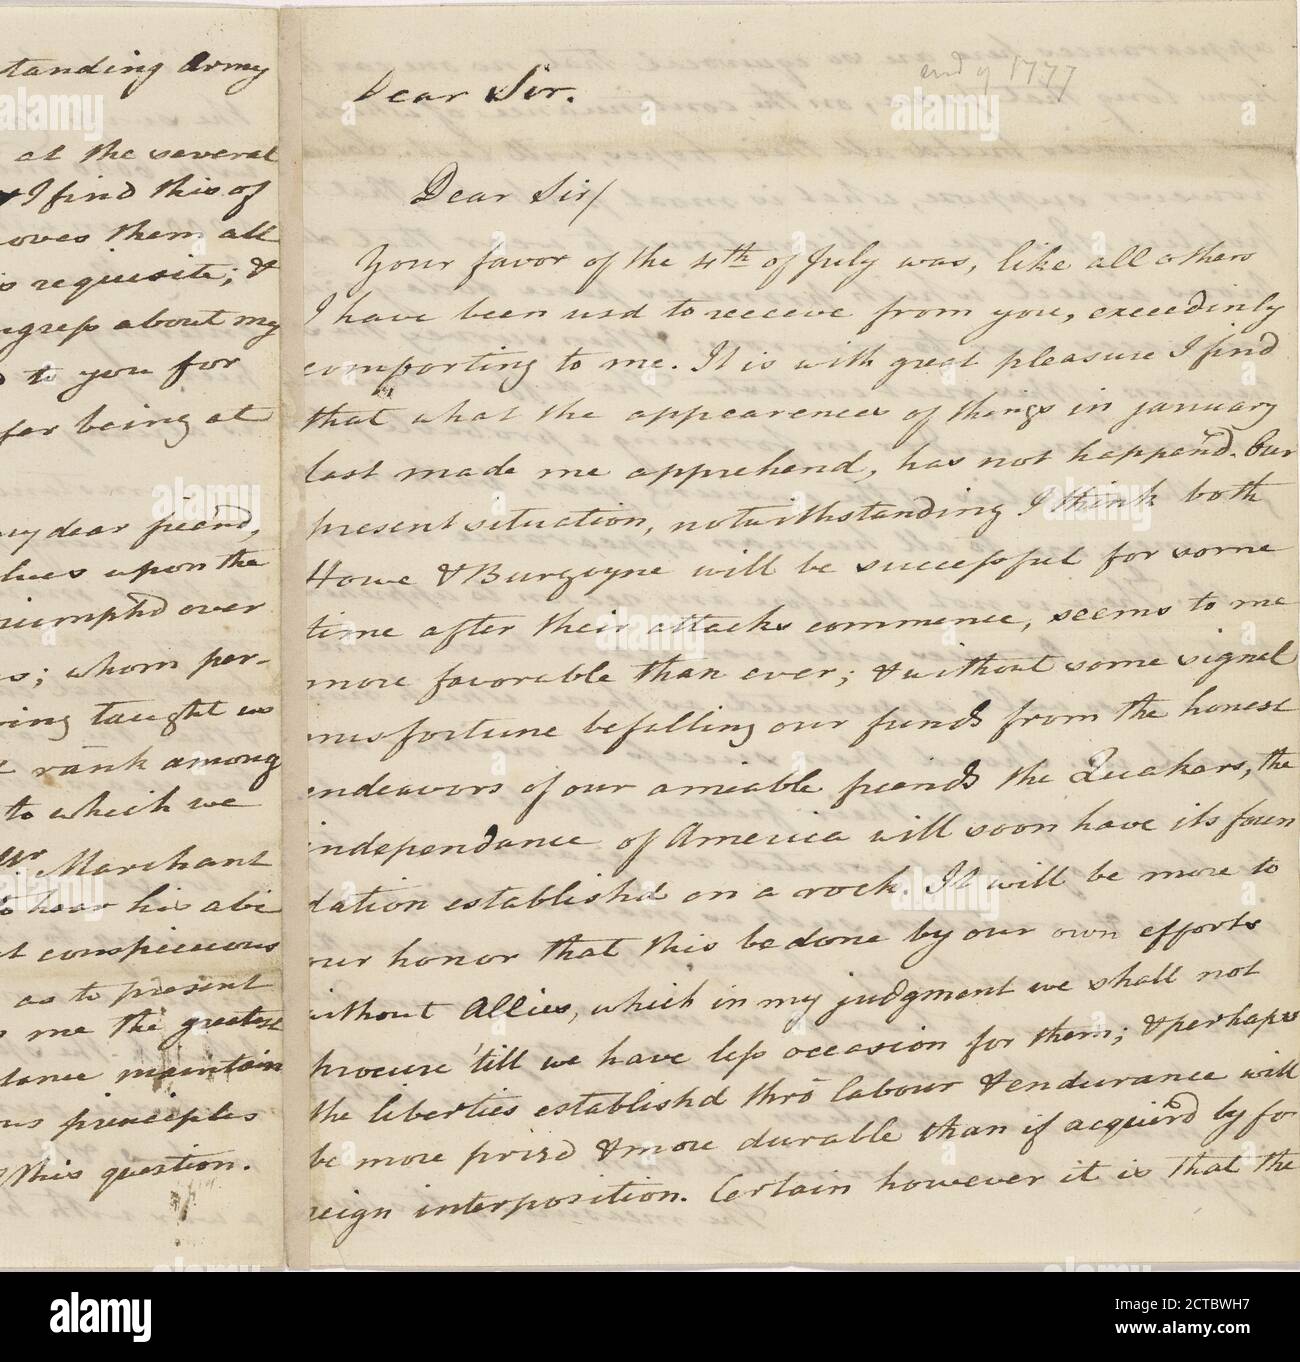 standing army
at the several
& I find this of
oves them all
is requisite; &
ngress about my
to you for
for being at
my dear friend,
lues upon the
riumph'd over
; whom per-
ving taught us
rank among
to which we
Mr. Marchant
to hear his abi
conspicuous
as to present
me the greatest
tance maintain
ous principles
this question.
Dear Sir.
end of 1777
Dear Sir/
Your favor of the 4th of July was, like all others
I have been usd to receeve from you, exceedinly
comforting to me. It is with great pleasure I find
that what the appearences of things in january
last made me apprehend, has not happen'd. Our
present situation, notwithstanding I think both
Howe & Burgoyne will be successful for some
time after their attacks commence, seems to me
more favorable than ever; & without some signal
misfortune befalling our funds from the honest
endeavors of our amiable friends the Quakers, the
independance of America will soon have its foun
dation establishd on a rock. It will be more to
our honor that this be done by our own efforts
without Allies, which in my judgment we shall not
procure 'till we have less occasion for them; & perhaps
the liberties establishd thro labour & endurance will
be more prizd & more durable than if acquierd by fo
reign interposition. Certain however it is that the
alamy
www.alamy.com
Image ID: 2CTBWH7